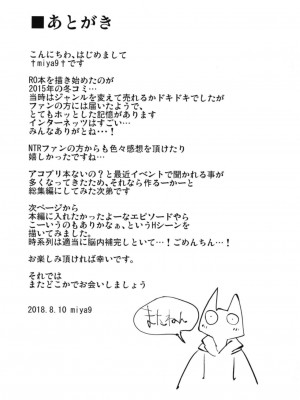 ■あとがき
こんにちわ、はじめまして
†miya9†です
RO本を描き始めたのが
2015年の冬コミ…
当時はジャンルを変えて売れるかドキドキでしたが
ファンの方には届いたようで、
とてもホッとした記憶があります
インターネッツはすごい…
みんなありがとね・・・！
NTRファンの方からも色々感想を頂けたり
嬉しかったですね…
アコプリ本ないの？と最近イベントで聞かれる事が
多くなってきたため、それなら作るーかーと
総集編にしてみた次第です
次ページから
本編に入れたかったよーなエピソードやら
こーいうのもありかなぁ、というHシーンを
描いてみました。
時系列は適当に脳内補完しといて…！ごめんちん…！
お楽しみ頂ければ幸いです。
それでは
またどこかでお会いしましょう
2018.8.10 miya9
またねん